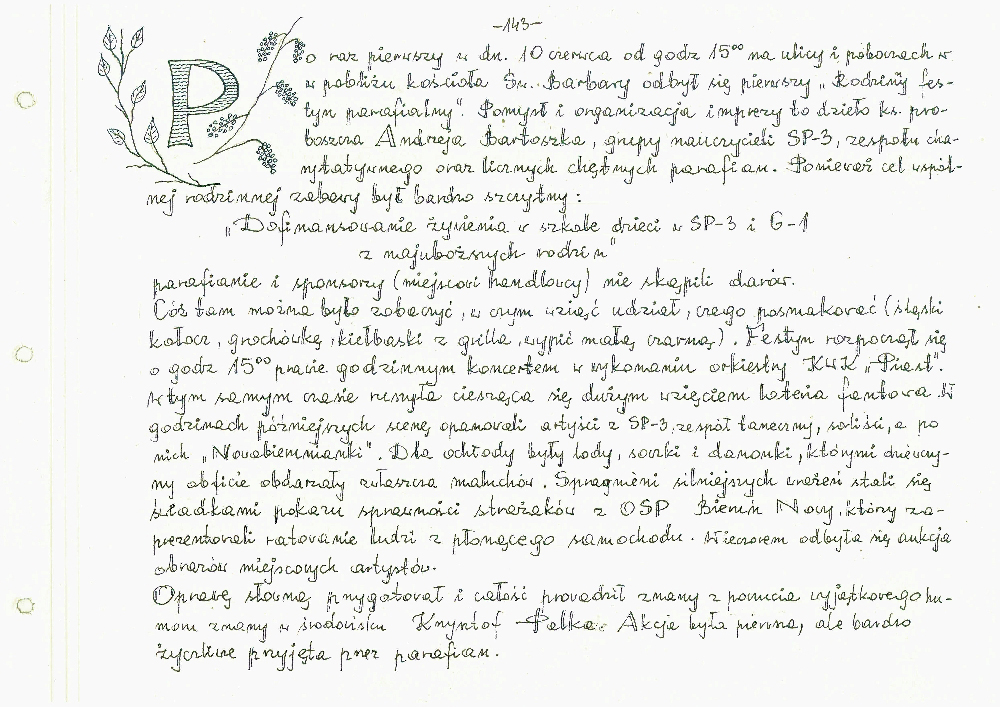 -143-
Po raz pierwszy w dn. 10 czerwca od godz 15⁰⁰ na ulicy i poboczach w
w pobliżu kościoła Św. Barbary odbył się pierwszy „Rodzinny fes-
tyn parafialny". Pomysł i organizacja imprezy to dzieło ks. pro-
boszcza Andrzeja Bartoszka, grupy nauczycieli SP-3, zespołu cha-
rytatywnego oraz licznych chętnych parafian. Ponieważ cel wspól-
nej rodzinnej zabawy był bardzo szczytny:
„Dofinansowanie żywienia w szkole dzieci w SP-3 i G-1
z najuboższych rodzin"
parafianie i sponsorzy (miejscowi handlowcy) nie skąpili darów.
Cóż tam można było zobaczyć, w czym wziąć udział, czego posmakować (śląski
kołocz, grochówkę, kiełbaski z grilla, wypić małą czarną). Festyn rozpoczął się
o godz 15⁰⁰ prawie godzinnym koncertem w wykonaniu orkiestry KWK „Piast".
W tym samym czasie ruszyła ciesząca się dużym wzięciem loteria fantowa. W
godzinach późniejszych scenę opanowali artyści z SP-3, zespół taneczny, soliści, a po
nich „Nowobierunianki". Dla ochłody były lody, soczki i danonki, którymi dziewczy-
ny obficie obdarzały zwłaszcza maluchów. Spragnieni silniejszych wrażeń stali się
świadkami pokazu sprawności strażaków z OSP Bieruń Nowy, który za-
prezentowali ratowanie ludzi z płonącego samochodu. Wieczorem odbyła się aukcja
obrazów miejscowych artystów.
Oprawę słowną przygotował i całość prowadził znany z poczucia wyjątkowego hu-
moru znany w środowisku Krzysztof Palka. Akcja była pierwsza, ale bardzo
życzliwie przyjęta przez parafian.